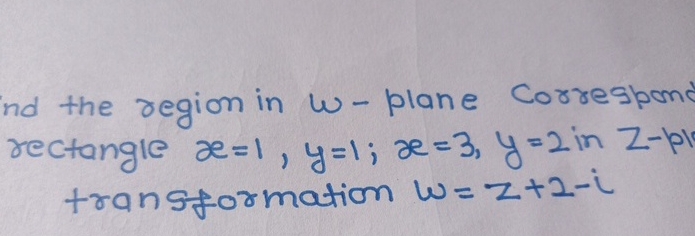 nd the region in w - plane Correspond
rectangle x=1, y=1; x=3, y=2 in Z-pl
transformation w=z+2-i